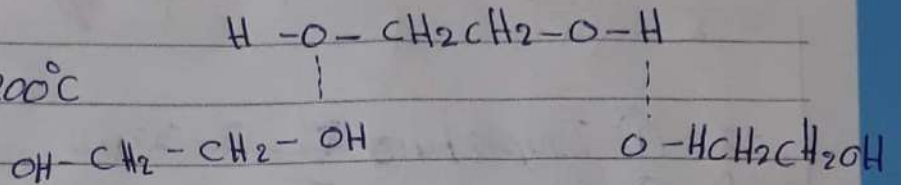 H-O-CH2CH2-O-H
00°C
OH-CH2-CH2-OH O-HCH2CH2OH